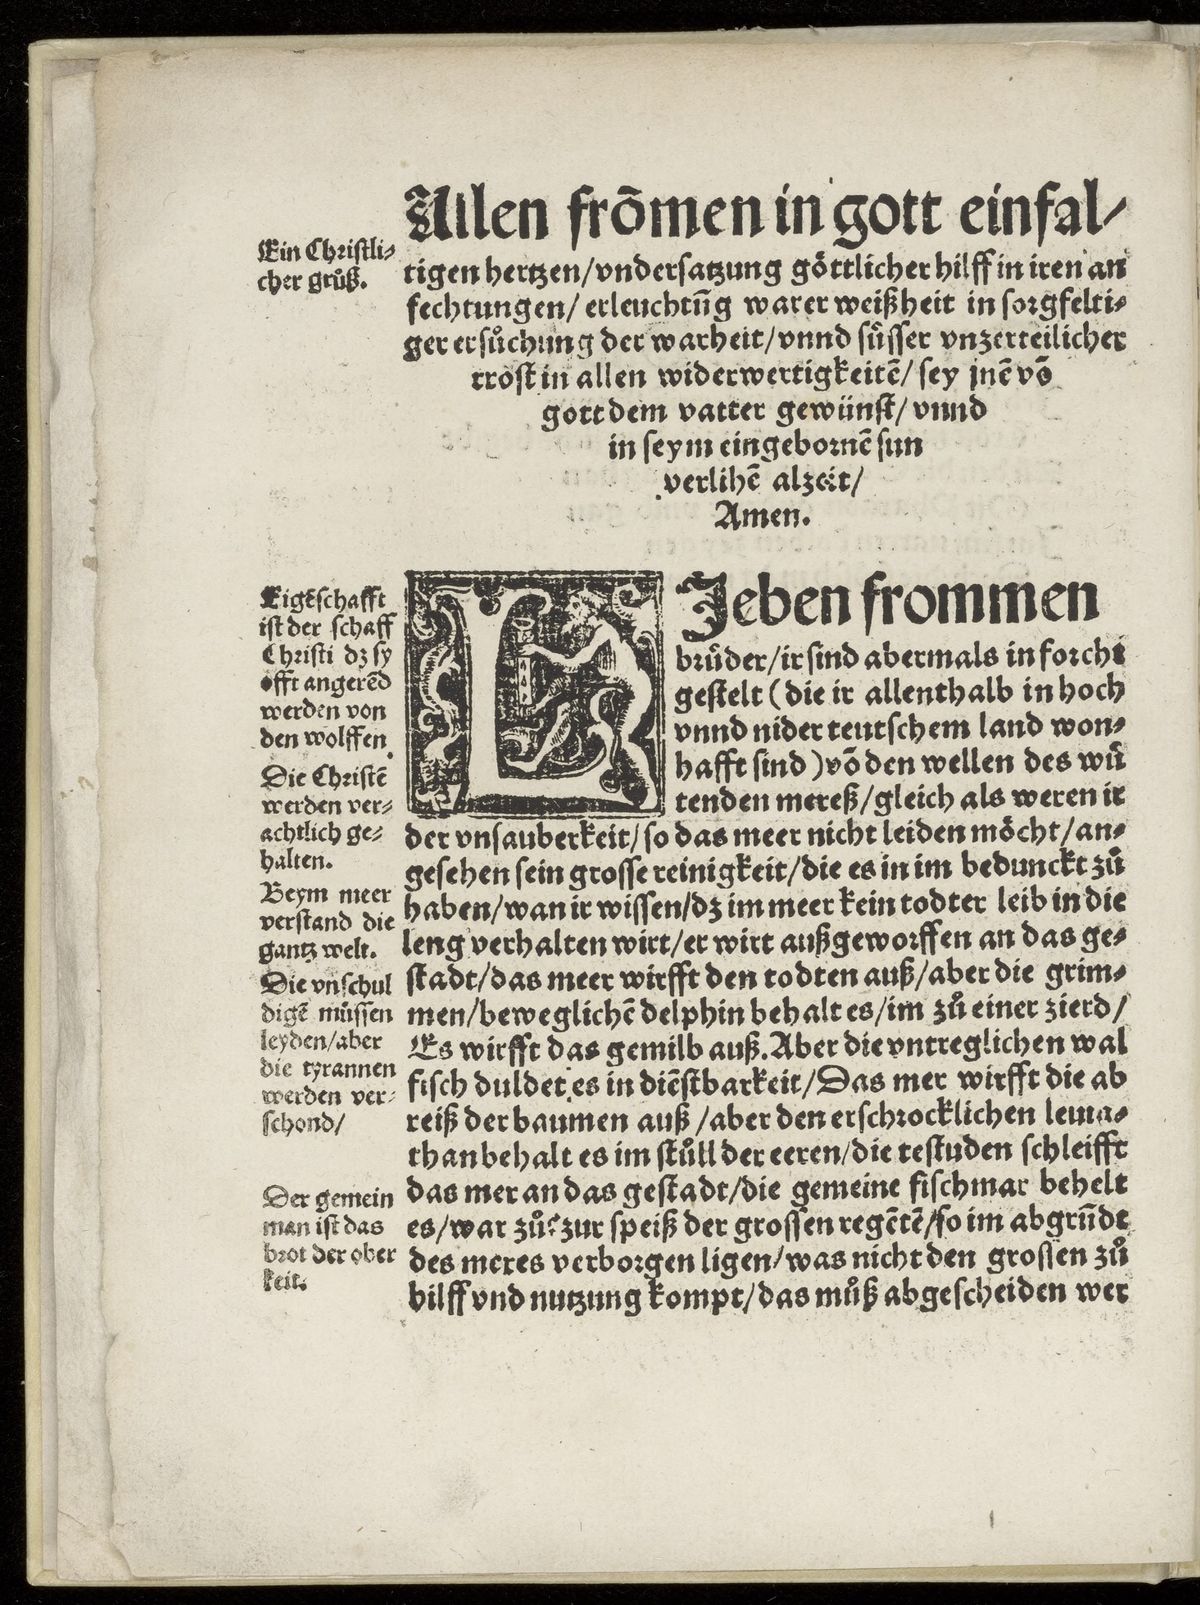 Allen frōmen in gott einfal⸗
Ein Christli⸗
cher grůß.
tigen hertzen/vndersatzung göttlicher hilff in iren an
fechtungen/ erleuchtūg warer weißheit in sorgfelti⸗
ger ersůchung der warheit/vnnd süsser vnzerteilicher
trost in allen widerwertigkeitē/ sey jnē vō
gott dem vatter gewünst/ vnnd
in seym eingebornē sun
verlihē alzeit/
Amen.
Eigēschafft
ist der schaff
Christi dz sy
offt angerēd
werden von
den wolffen
Die Christē
werden ver⸗
achtlich ge⸗
halten.
Beym meer
verstand die
gantz welt.
Die vnschul
digē müssen
leyden/aber
die tyrannen
werden ver⸗
schond/
Der gemein
man ist das
brot der ober
keit.
LIeben frommen
brůder/ir sind abermals in forcht
gestelt (die ir allenthalb in hoch
vnnd nider teutschem land won⸗
hafft sind) vō den wellen des wü
tenden mereß/gleich als weren ir
der vnsauberkeit/so das meer nicht leiden möcht/an⸗
gesehen sein grosse reinigkeit/die es in im bedunckt zů
haben/wan ir wissen/dz im meer kein todter leib in die
leng verhalten wirt/er wirt außgeworffen an das ge⸗
stadt/das meer wirfft den todten auß/aber die grim⸗
men/beweglichē delphin behalt es/im zů einer zierd/
Es wirfft das gemilb auß. Aber die vntreglichen wal
fisch duldet es in diēstbarkeit/Das mer wirfft die ab
reiß der baumen auß/aber den erschrocklichen leuia⸗
than behalt es im stůll der eeren/die testuden schleifft
das mer an das gestadt/die gemeine fischmar behelt
es/war zů? zur speiß der grossen regētē/so im abgrūdt
des meres verborgen ligen/was nicht den grossen zů
hilff vnd nutzung kompt/das můß abgescheiden wer